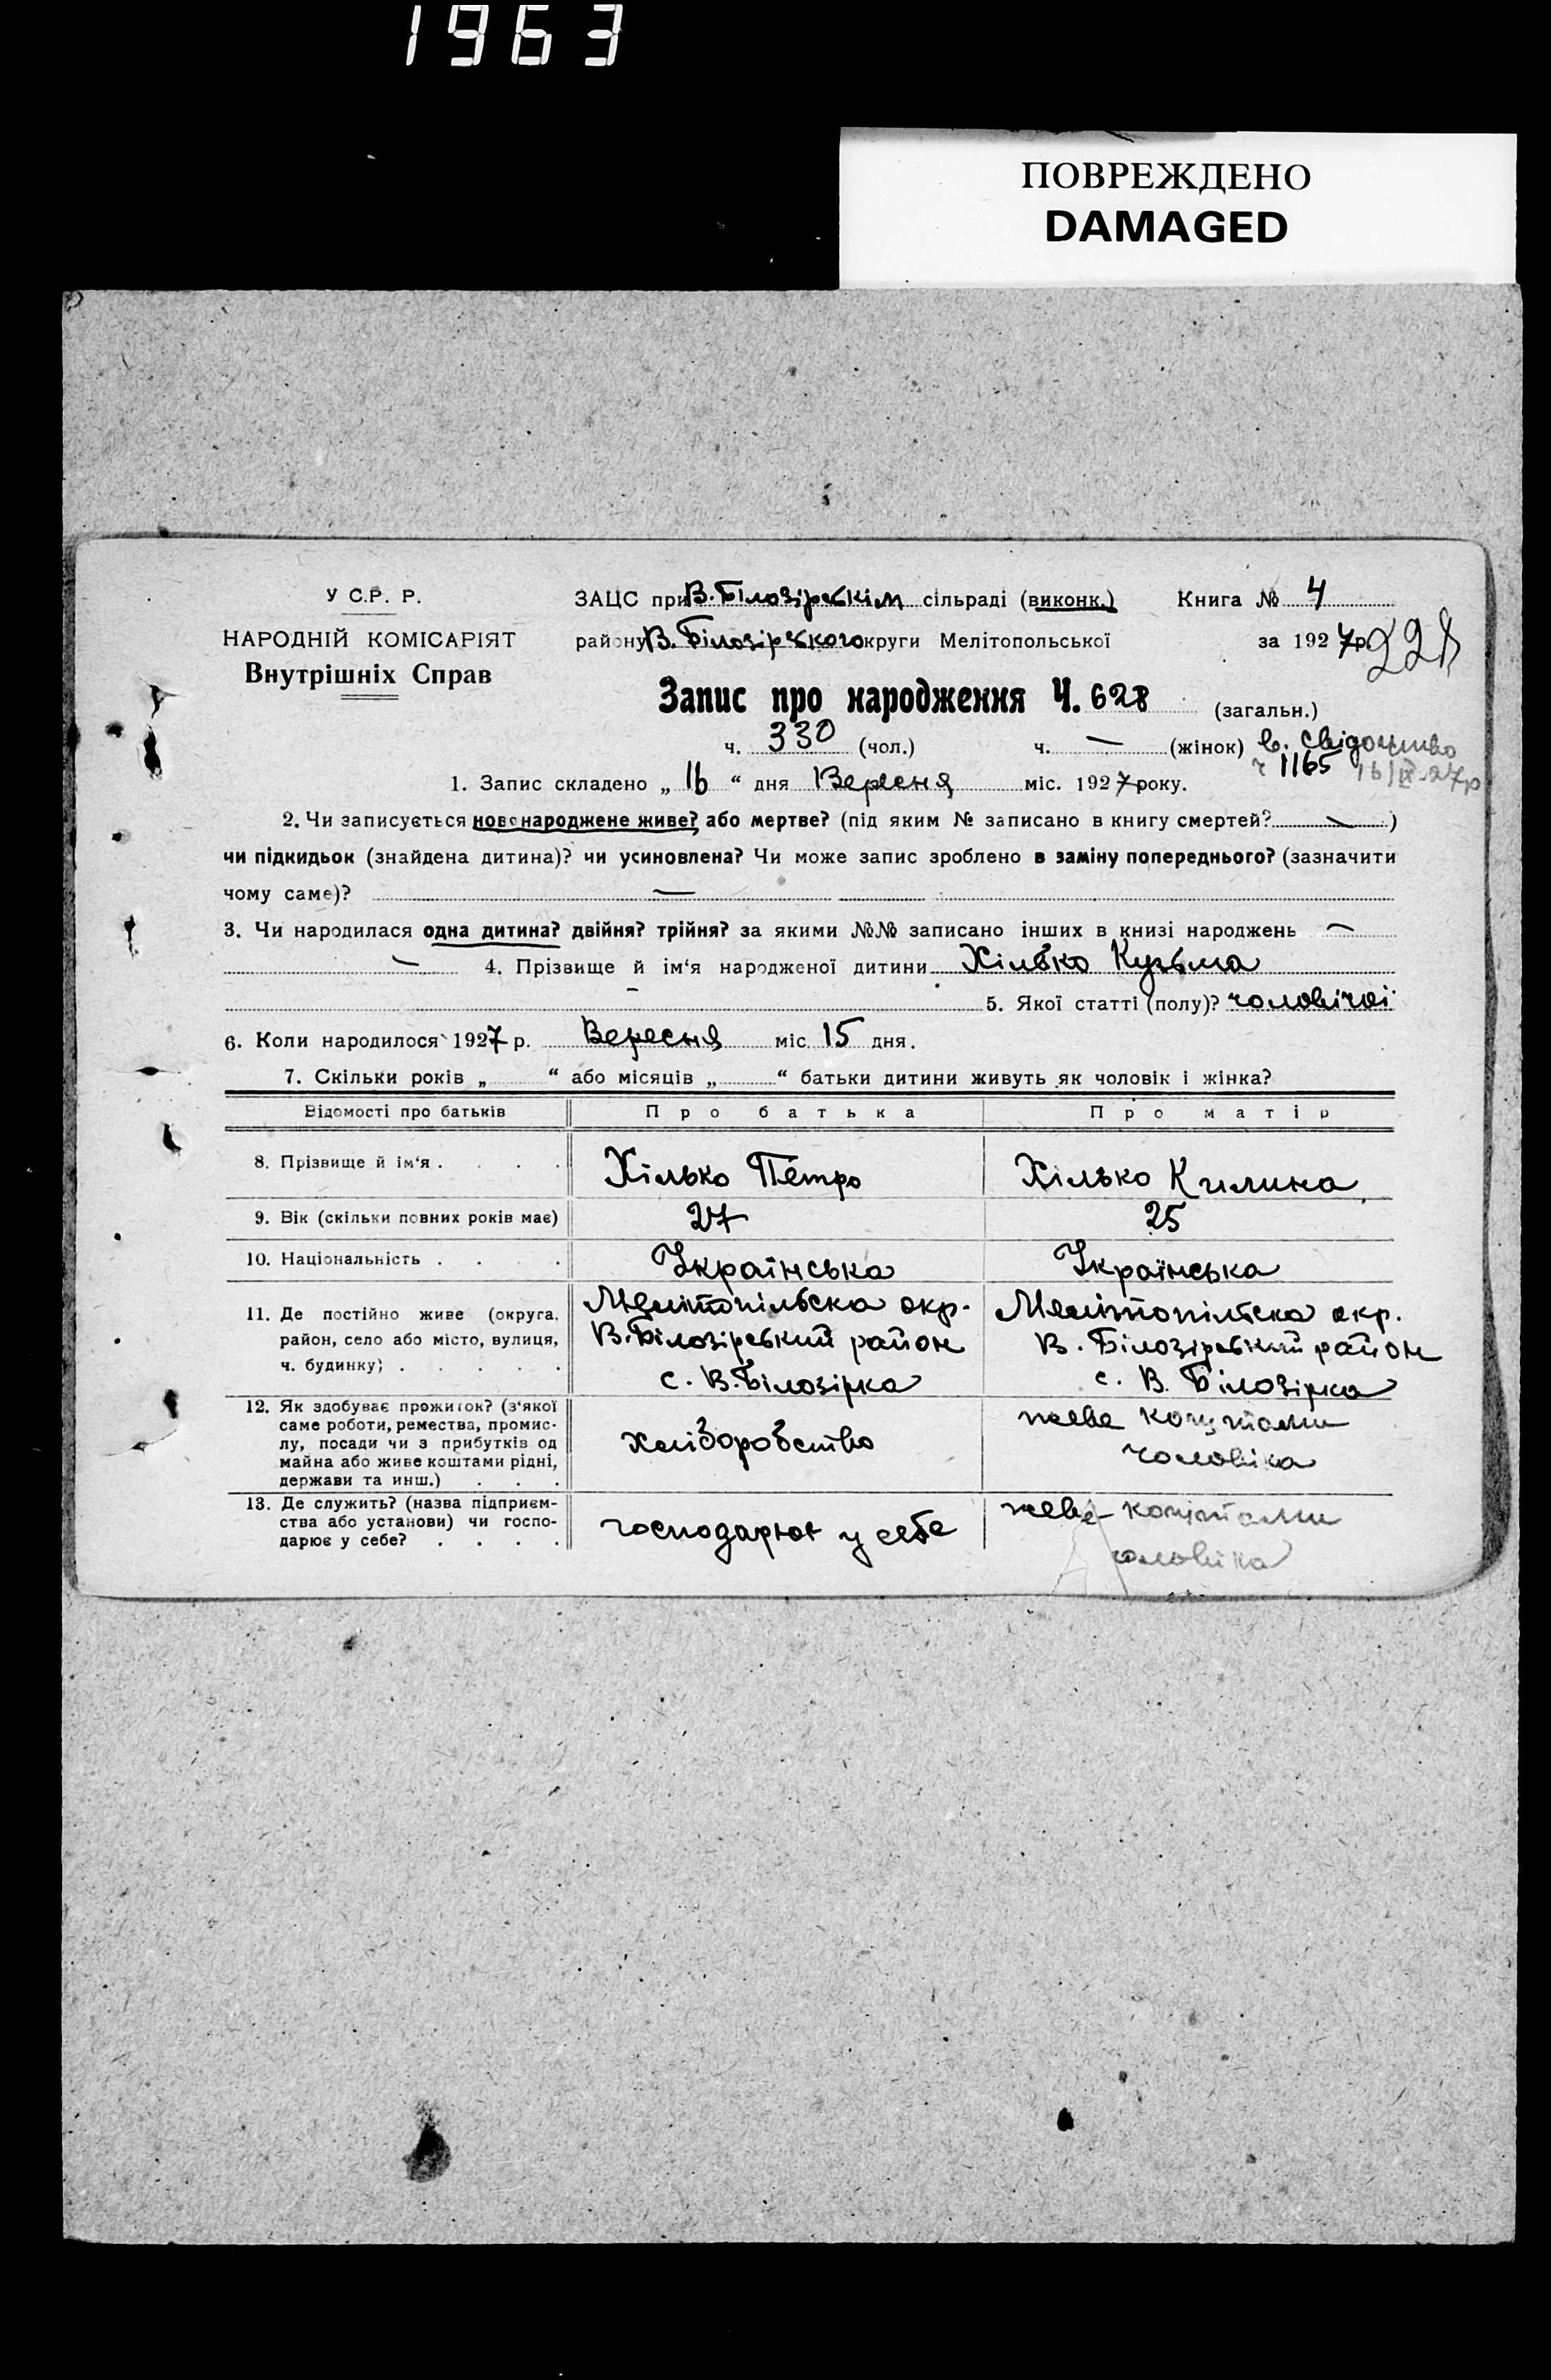 1963
ПОВРЕЖДЕНО
DAMAGED
У С.Р. Р.
НАРОДНІЙ КОМІСАРІЯТ
Внутрішніх Справ
ЗАЦС при В. Білозірськім сільраді (виконк.) Книга № 4
району В. Білозірського округи Мелітопольської за 1927 р.
228
Запис про народження Ч. 628 (загальн.)
ч. 330 (чол.) ч. — (жінок) в. свідоцтво
ч 1165 16/IX-27р
1. Запис складено „ 16 “ дня Вересня міс. 1927 року.
2. Чи записується новонароджене живе? або мертве? (під яким № записано в книгу смертей? — )
чи підкидьок (знайдена дитина)? чи усиновлена? Чи може запис зроблено в заміну попереднього? (зазначити
чому саме)? —
3. Чи народилася одна дитина? двійня? трійня? за якими №№ записано інших в книзі народжень —
— 4. Прізвище й ім‘я народженої дитини Хілько Кузьма
5. Якої статті (полу)? чоловічої
6. Коли народилося 1927 р. Вересня міс. 15 дня.
7. Скільки років „ “ або місяців „ “ батьки дитини живуть як чоловік і жінка?
Відомості про батьків Про батька Про матір
8. Прізвище й ім‘я . . . . Хілько Петро Хілько Килина
9. Вік (скільки повних років має) 27 25
10. Національність . . . . Українська Українська
11. Де постійно живе (округа, район, село або місто, вулиця, ч. будинку) . . . . .
Мелітопільська окр.
В. Білозірський район
с. В. Білозірка
Мелітопільска окр.
В. Білозірський район
с. В. Білозірка
12. Як здобуває прожиток? (з‘якої
саме роботи, ремества, промис-
лу, посади чи з прибутків од
майна або живе коштами рідні,
держави та инш.) . . .
хліборобство
живе коштами
чоловіка
13. Де служить? (назва підприєм-
ства або установи) чи госпо-
дарює у себе? . . . .
господарює у себе
живе коштами
чоловіка